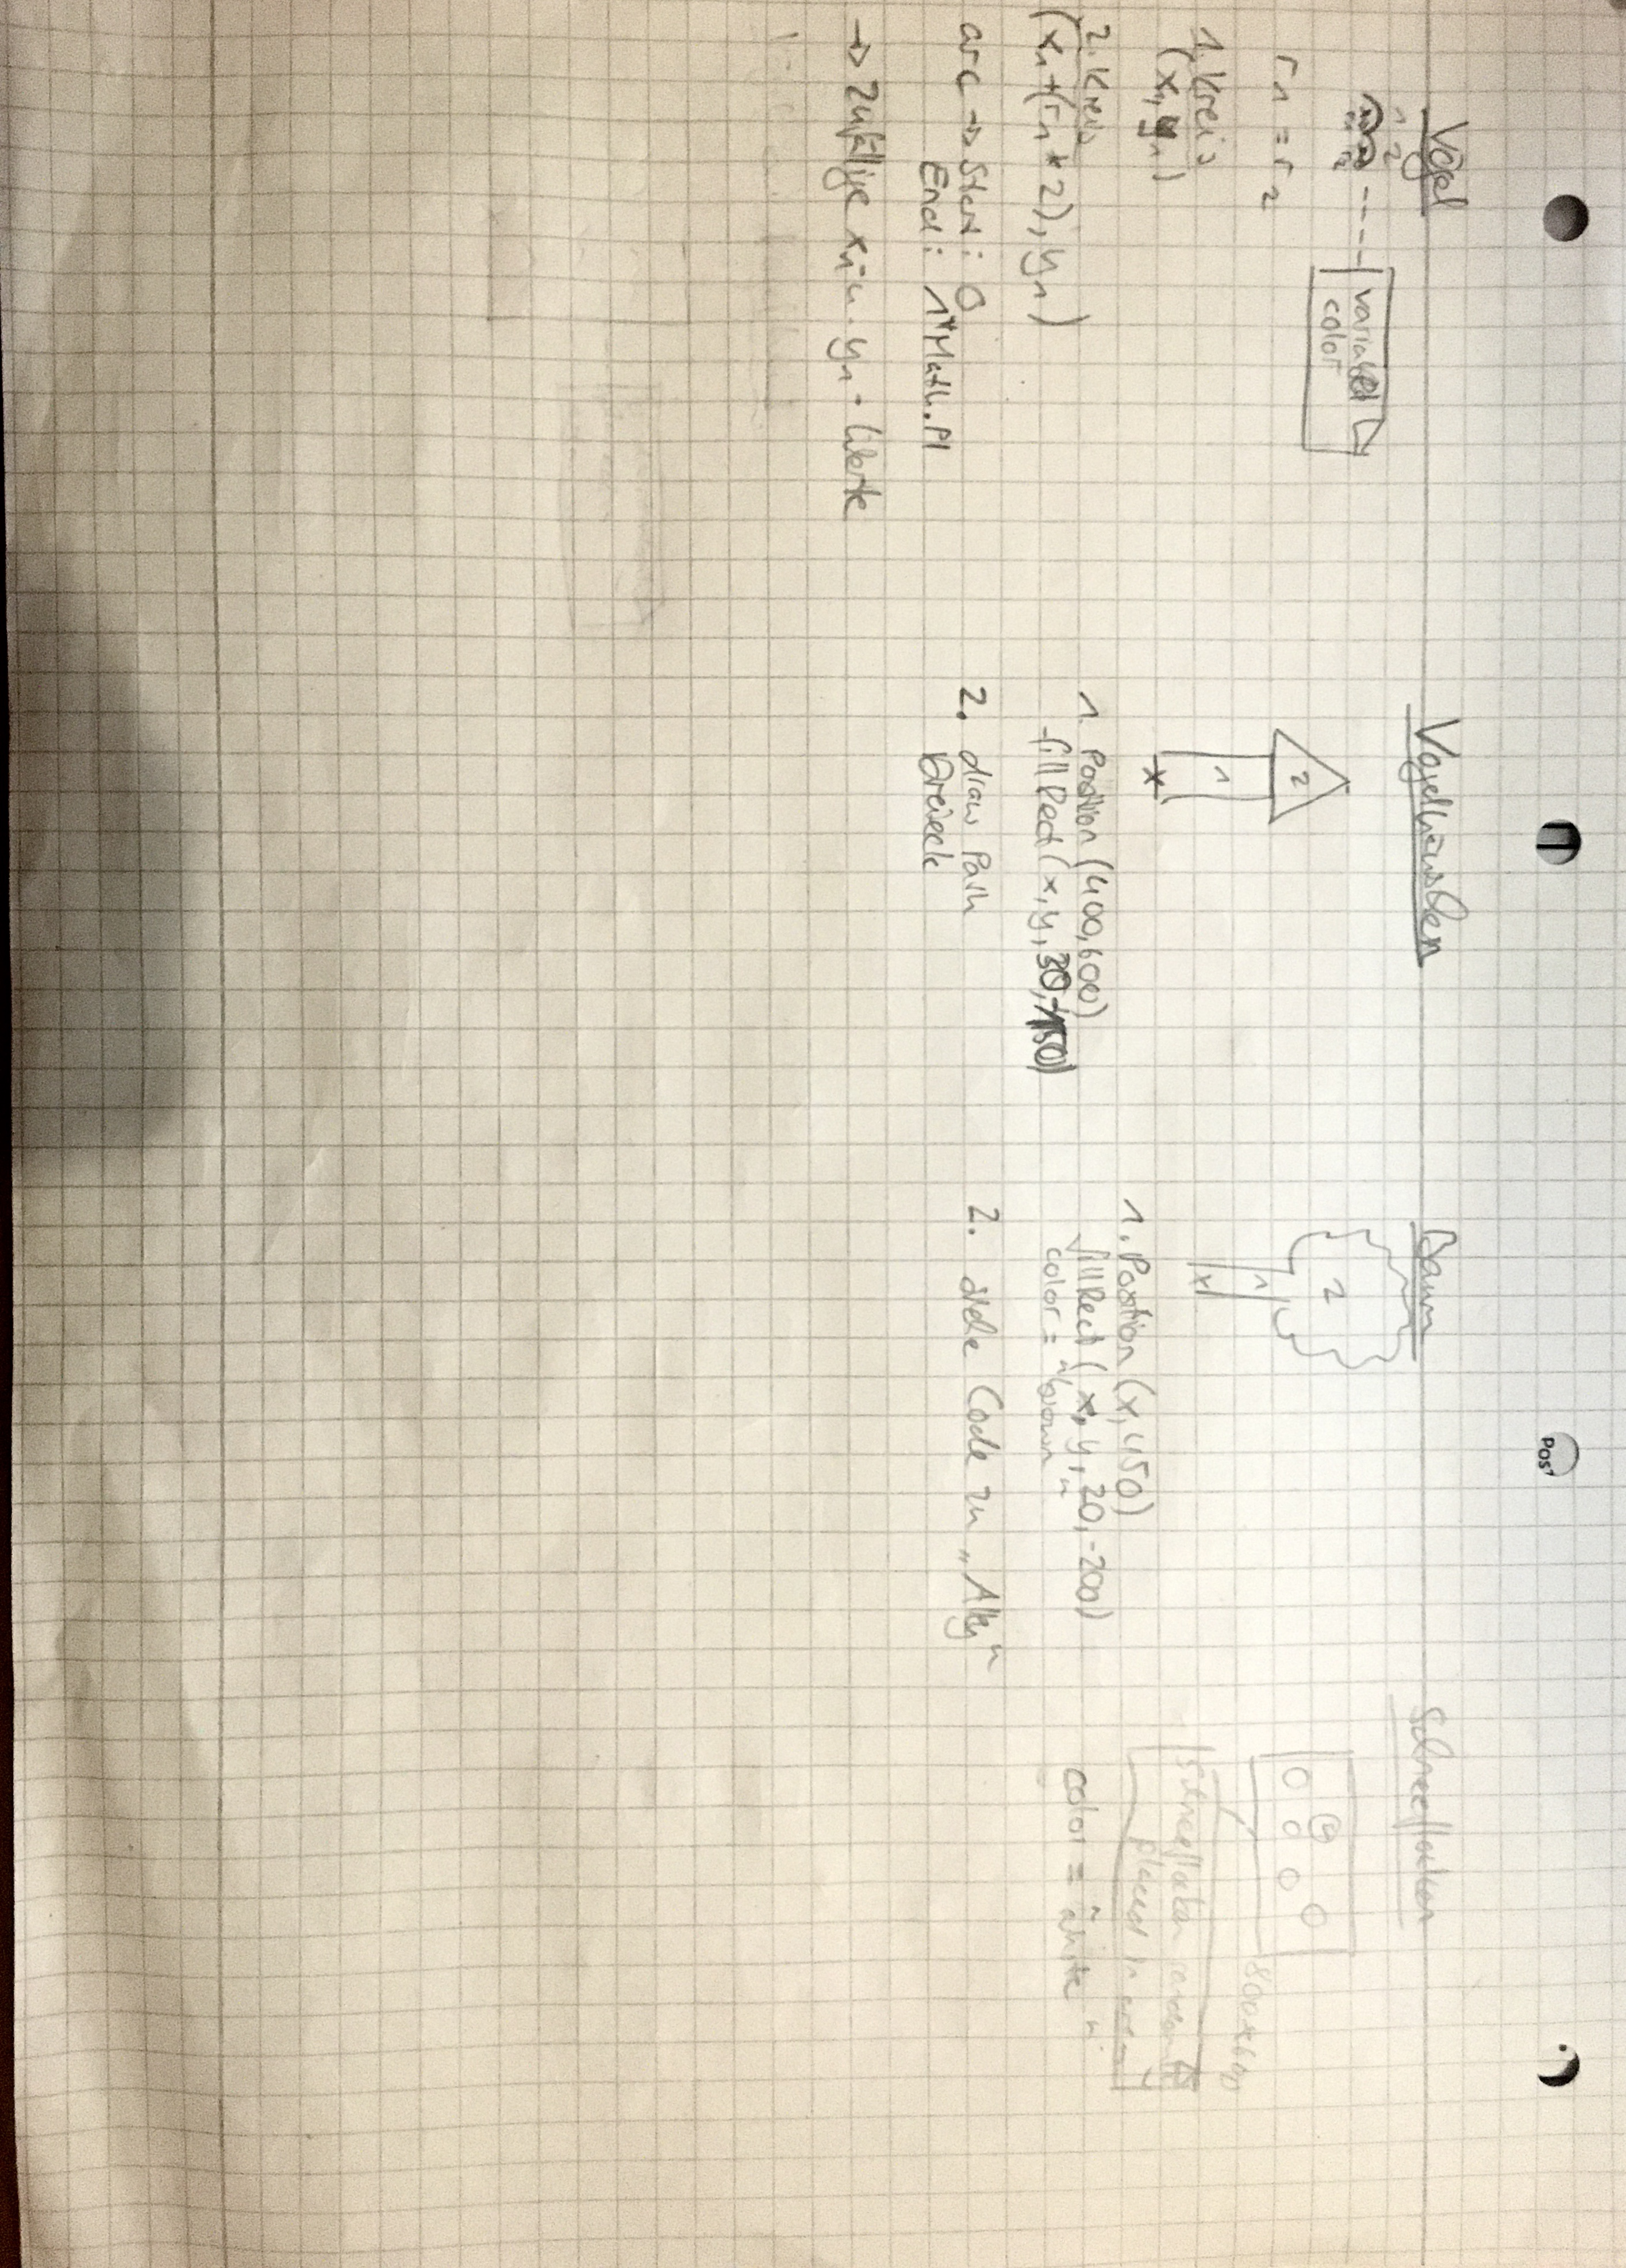 Vögel
1 2
variable
color
r1 = r2
1. Kreis
(x1, y1)
2. Kreis
(x1+(r1*2), y1)
arc → Start: 0
End: 1*Math.PI
→ Zufällige x1- u. y1-Werte
Vogelhäuschen
2
1
x
1. Position (400,600)
fillRect(x,y,30,-150)
2. draw Path
Dreieck
Baum
2
1
x
1. Position (x,450)
fillRect(x,y,20,-200)
color = "brown"
2. siehe Code zu „Alley"
Schneeflocken
800x600
Schneeflocken random
placed in area
color = "white"
Pos1